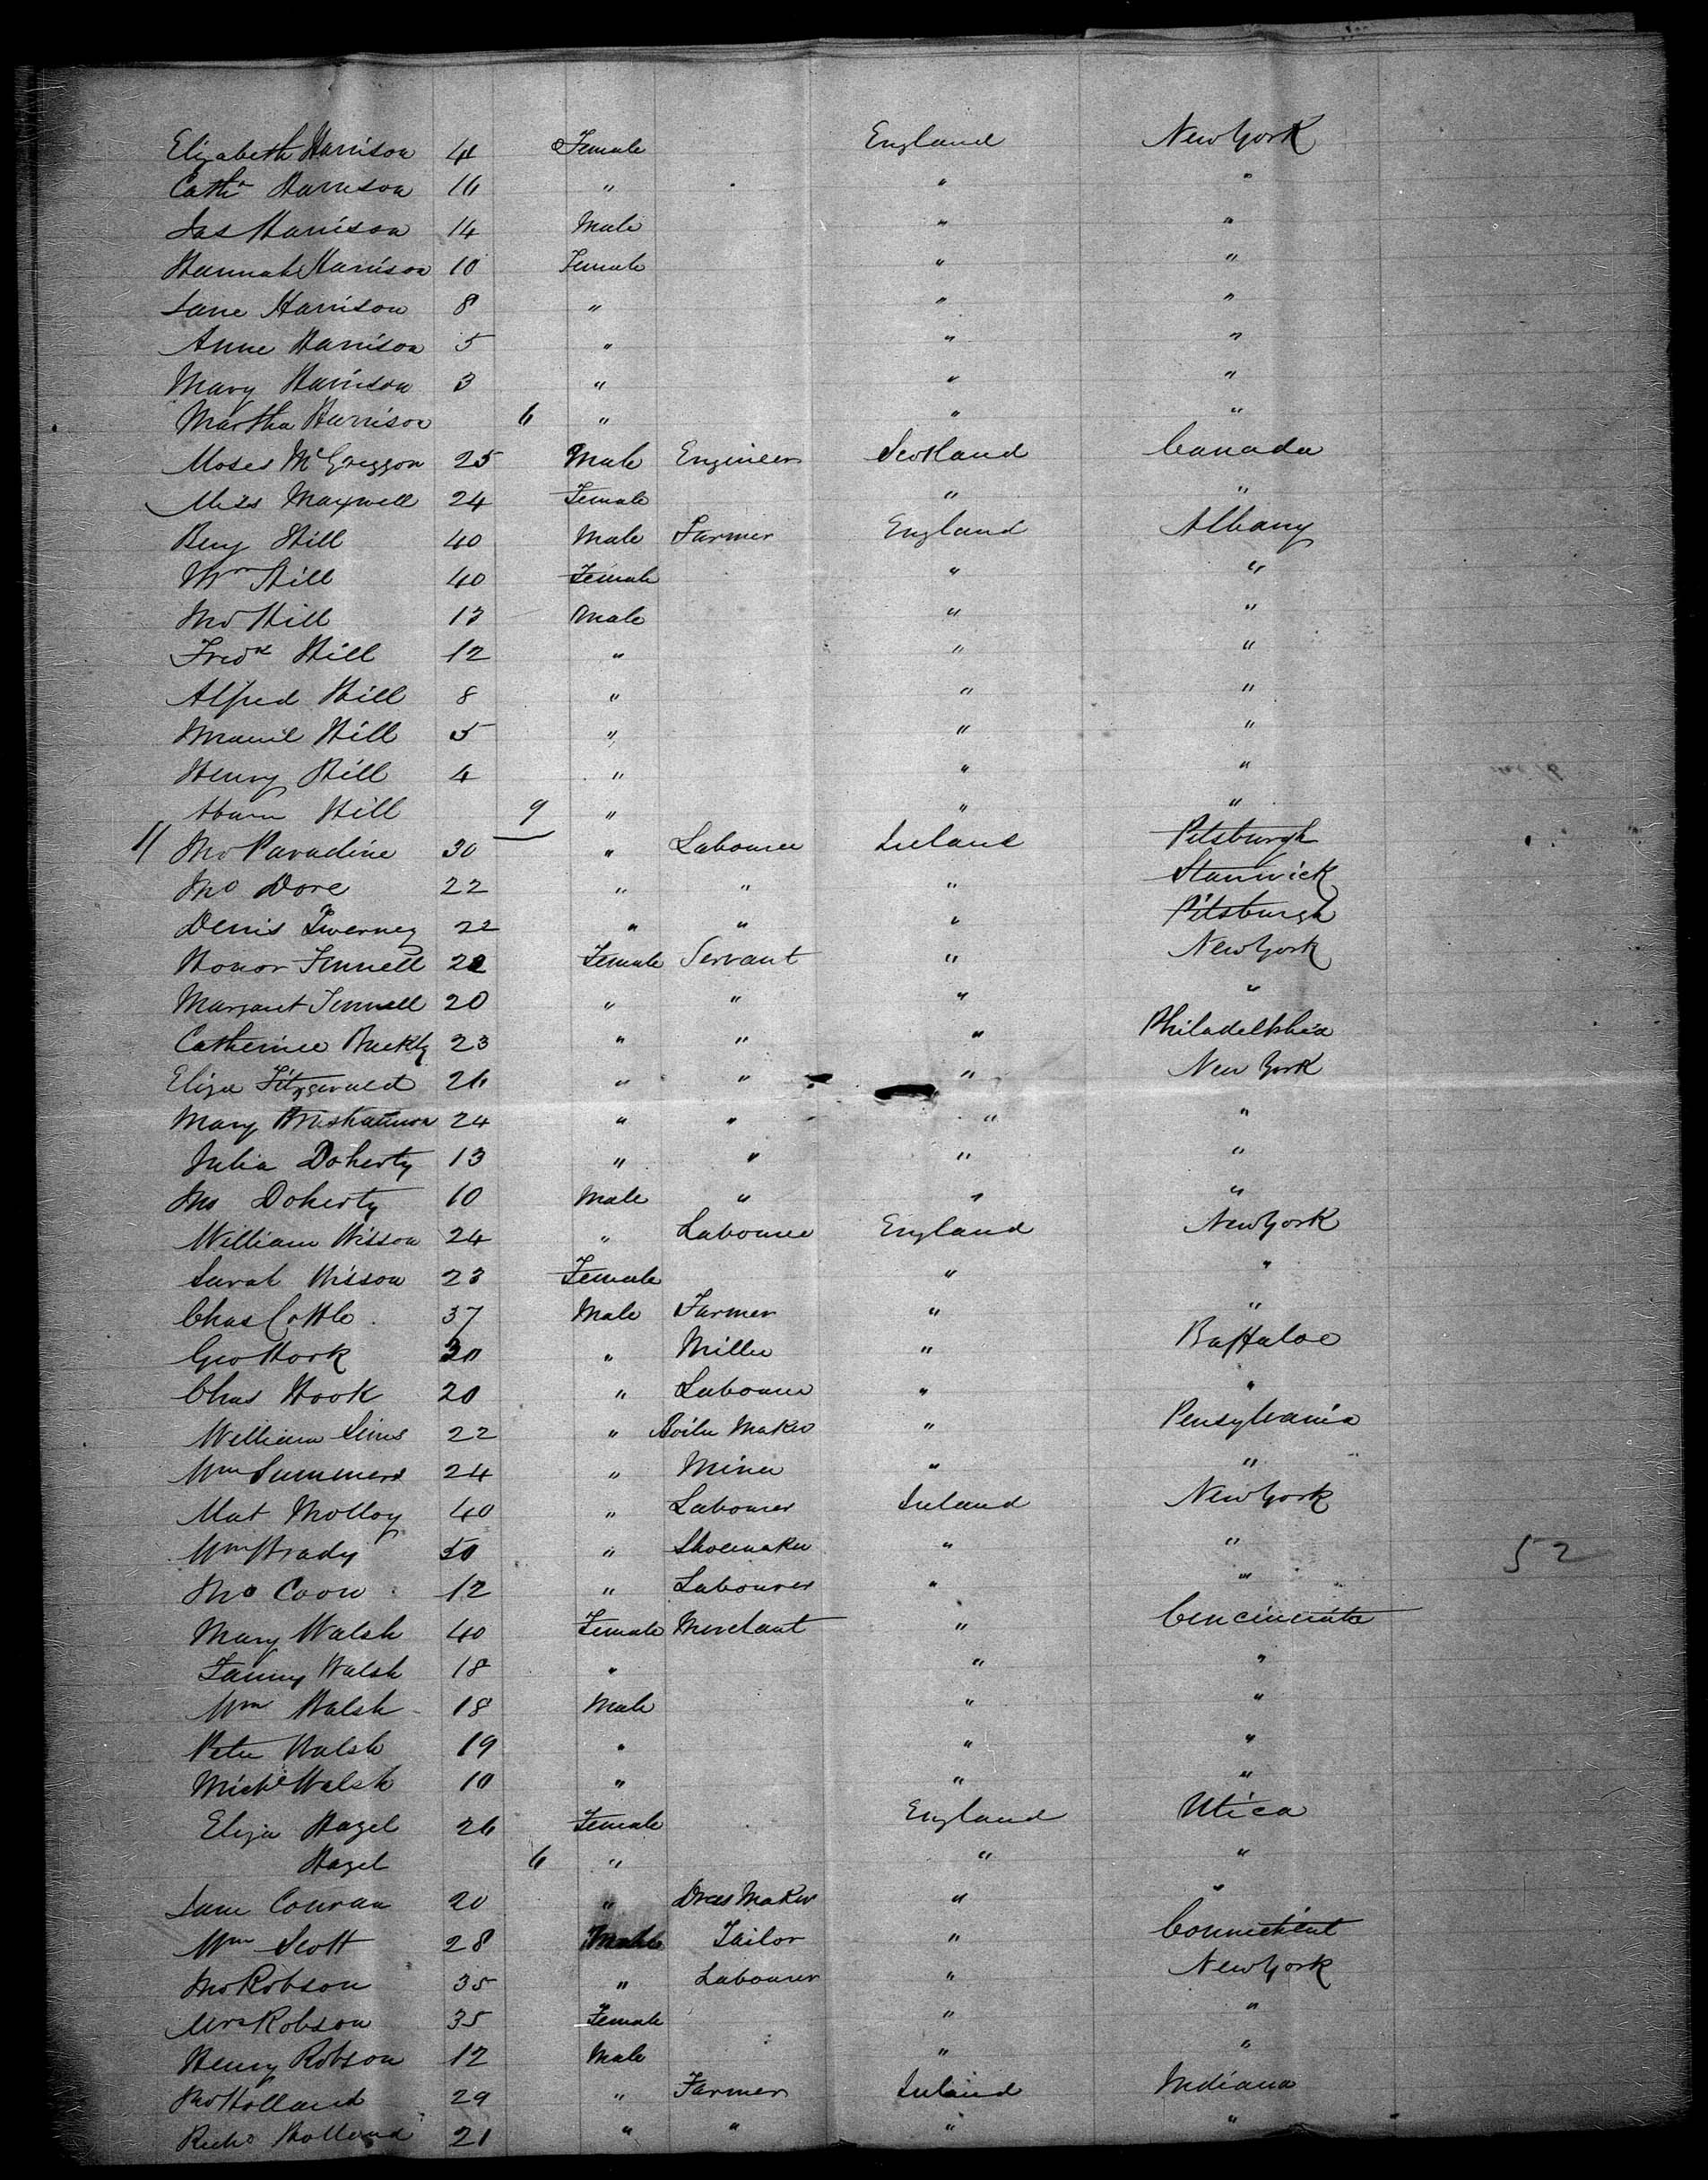 Elizabeth Harrison 41 Female England New York
Cathe Harrison 16 " " "
Jas Harrison 14 Male " "
Hannah Harrison 10 Female " "
Jane Harrison 8 " " "
Anne Harrison 5 " " "
Mary Harrison 3 " " "
Martha Harrison 6 " " "
Moses McGreggor 25 Male Engineer Scotland Canada
Miss Maxwell 24 Female " "
Benj Hill 40 Male Farmer England Albany
Hill 40 Female " "
Jno Hill 13 Male " "
Fredk Hill 12 " " "
Alfred Hill 8 " " "
Hill 5 " " "
Henry Hill 4 " " "
Hill 9 " " "
11 Jno Paradine 30 " Labourer Ireland Pitsburgh
Jno Dore 22 " " " Stanwick
Denis 22 " " " Pitsburgh
Honor Fennell 22 Female Servant " New York
Margaret Fennell 20 " " " "
Catherine Buckly 23 " " " Philadelphia
Eliza Fitzgerald 26 " " " New York
Mary 24 " " " "
Julia Doherty 13 " " " "
Jno Doherty 10 Male " " "
William Wisson 24 " Labourer England New York
Sarah Wisson 23 Female " "
Chas Cottle 37 Male Farmer " "
Geo Hook 30 " Miller " Buffaloe
Chas Hook 20 " Labourer " "
William Sims 22 " Boiler Maker " Pensylvania
Wm Summers 24 " Miner " "
Mat Molloy 40 " Labourer Ireland New York
Wm Brady 50 " Shoemaker " "
52
Jno Coon 12 " Labourer " "
Mary Walsh 40 Female Merchant " Cincinnita
Fanny Walsh 18 " " "
Wm Walsh 18 Male " "
Peter Walsh 19 " " "
Michl Walsh 10 " " "
Eliza Hazel 26 Female England Utica
Hazel 6 " " "
Jane Conran 20 " Dress Maker " "
Wm Scott 28 Male Tailor " Connecticut
Jno Robson 35 " Labourer " New York
Mrs Robson 35 Female " "
Henry Robson 12 Male " "
Jno Holland 29 " Farmer Ireland Indiana
Richd Holland 21 " " " "